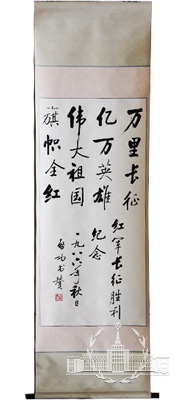 万里长征
亿万英雄
伟大祖国
旗帜全红
红军长征胜利
纪念
一九八六年秋日
启功书赞